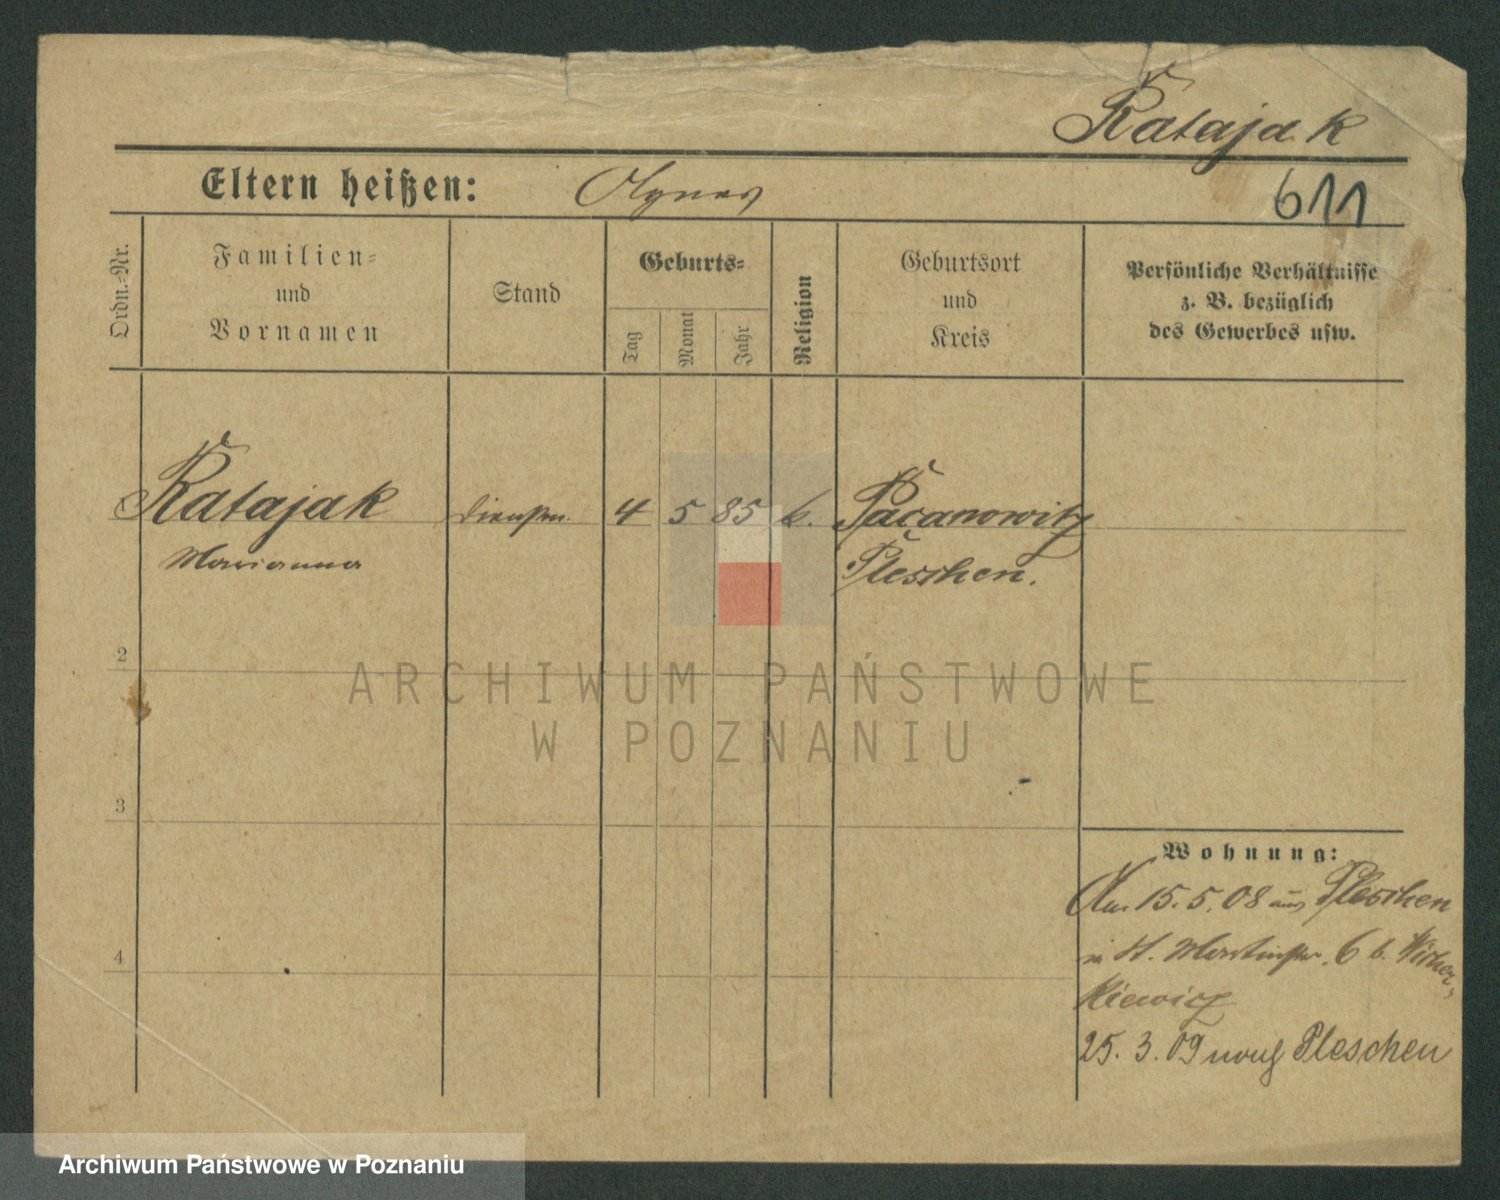 Ratajak
Eltern heißen: Agnes
611
Ordn.-Nr.
Familien-
und
Vornamen
Stand
Geburts-
Tag
Monat
Jahr
Religion
Geburtsort
und
Kreis
Persönliche Verhältnisse
z. B. bezüglich
des Gewerbes usw.
Ratajak 4 5 85 k. Pacanowitz
Marianna Pleschen.
2
3
4
Wohnung:
Am 15. 5. 08 aus Pleschen
in St. Martinstr. 6 b. Wicher-
kiewicz
25. 3. 09 nach Pleschen
ARCHIWUM PAŃSTWOWE
W POZNANIU
Archiwum Państwowe w Poznaniu